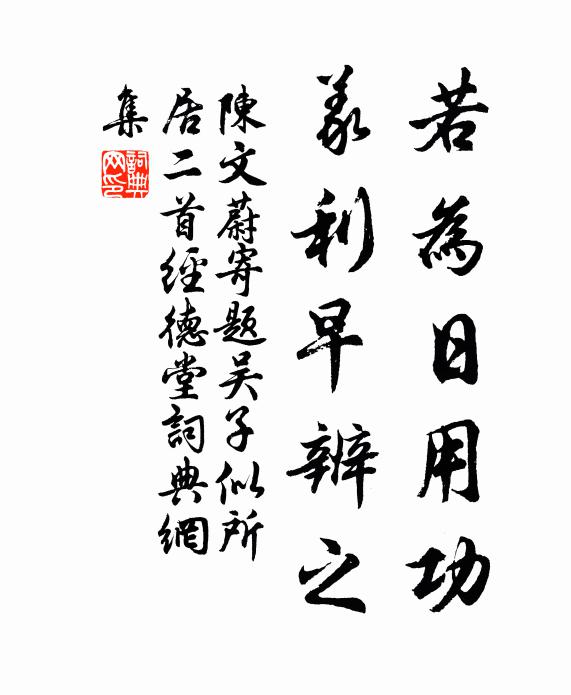 若為日用功
義利早辨之
陳文蔚寄題吳子似所
居二首經德堂詞典網
集
詞典網印